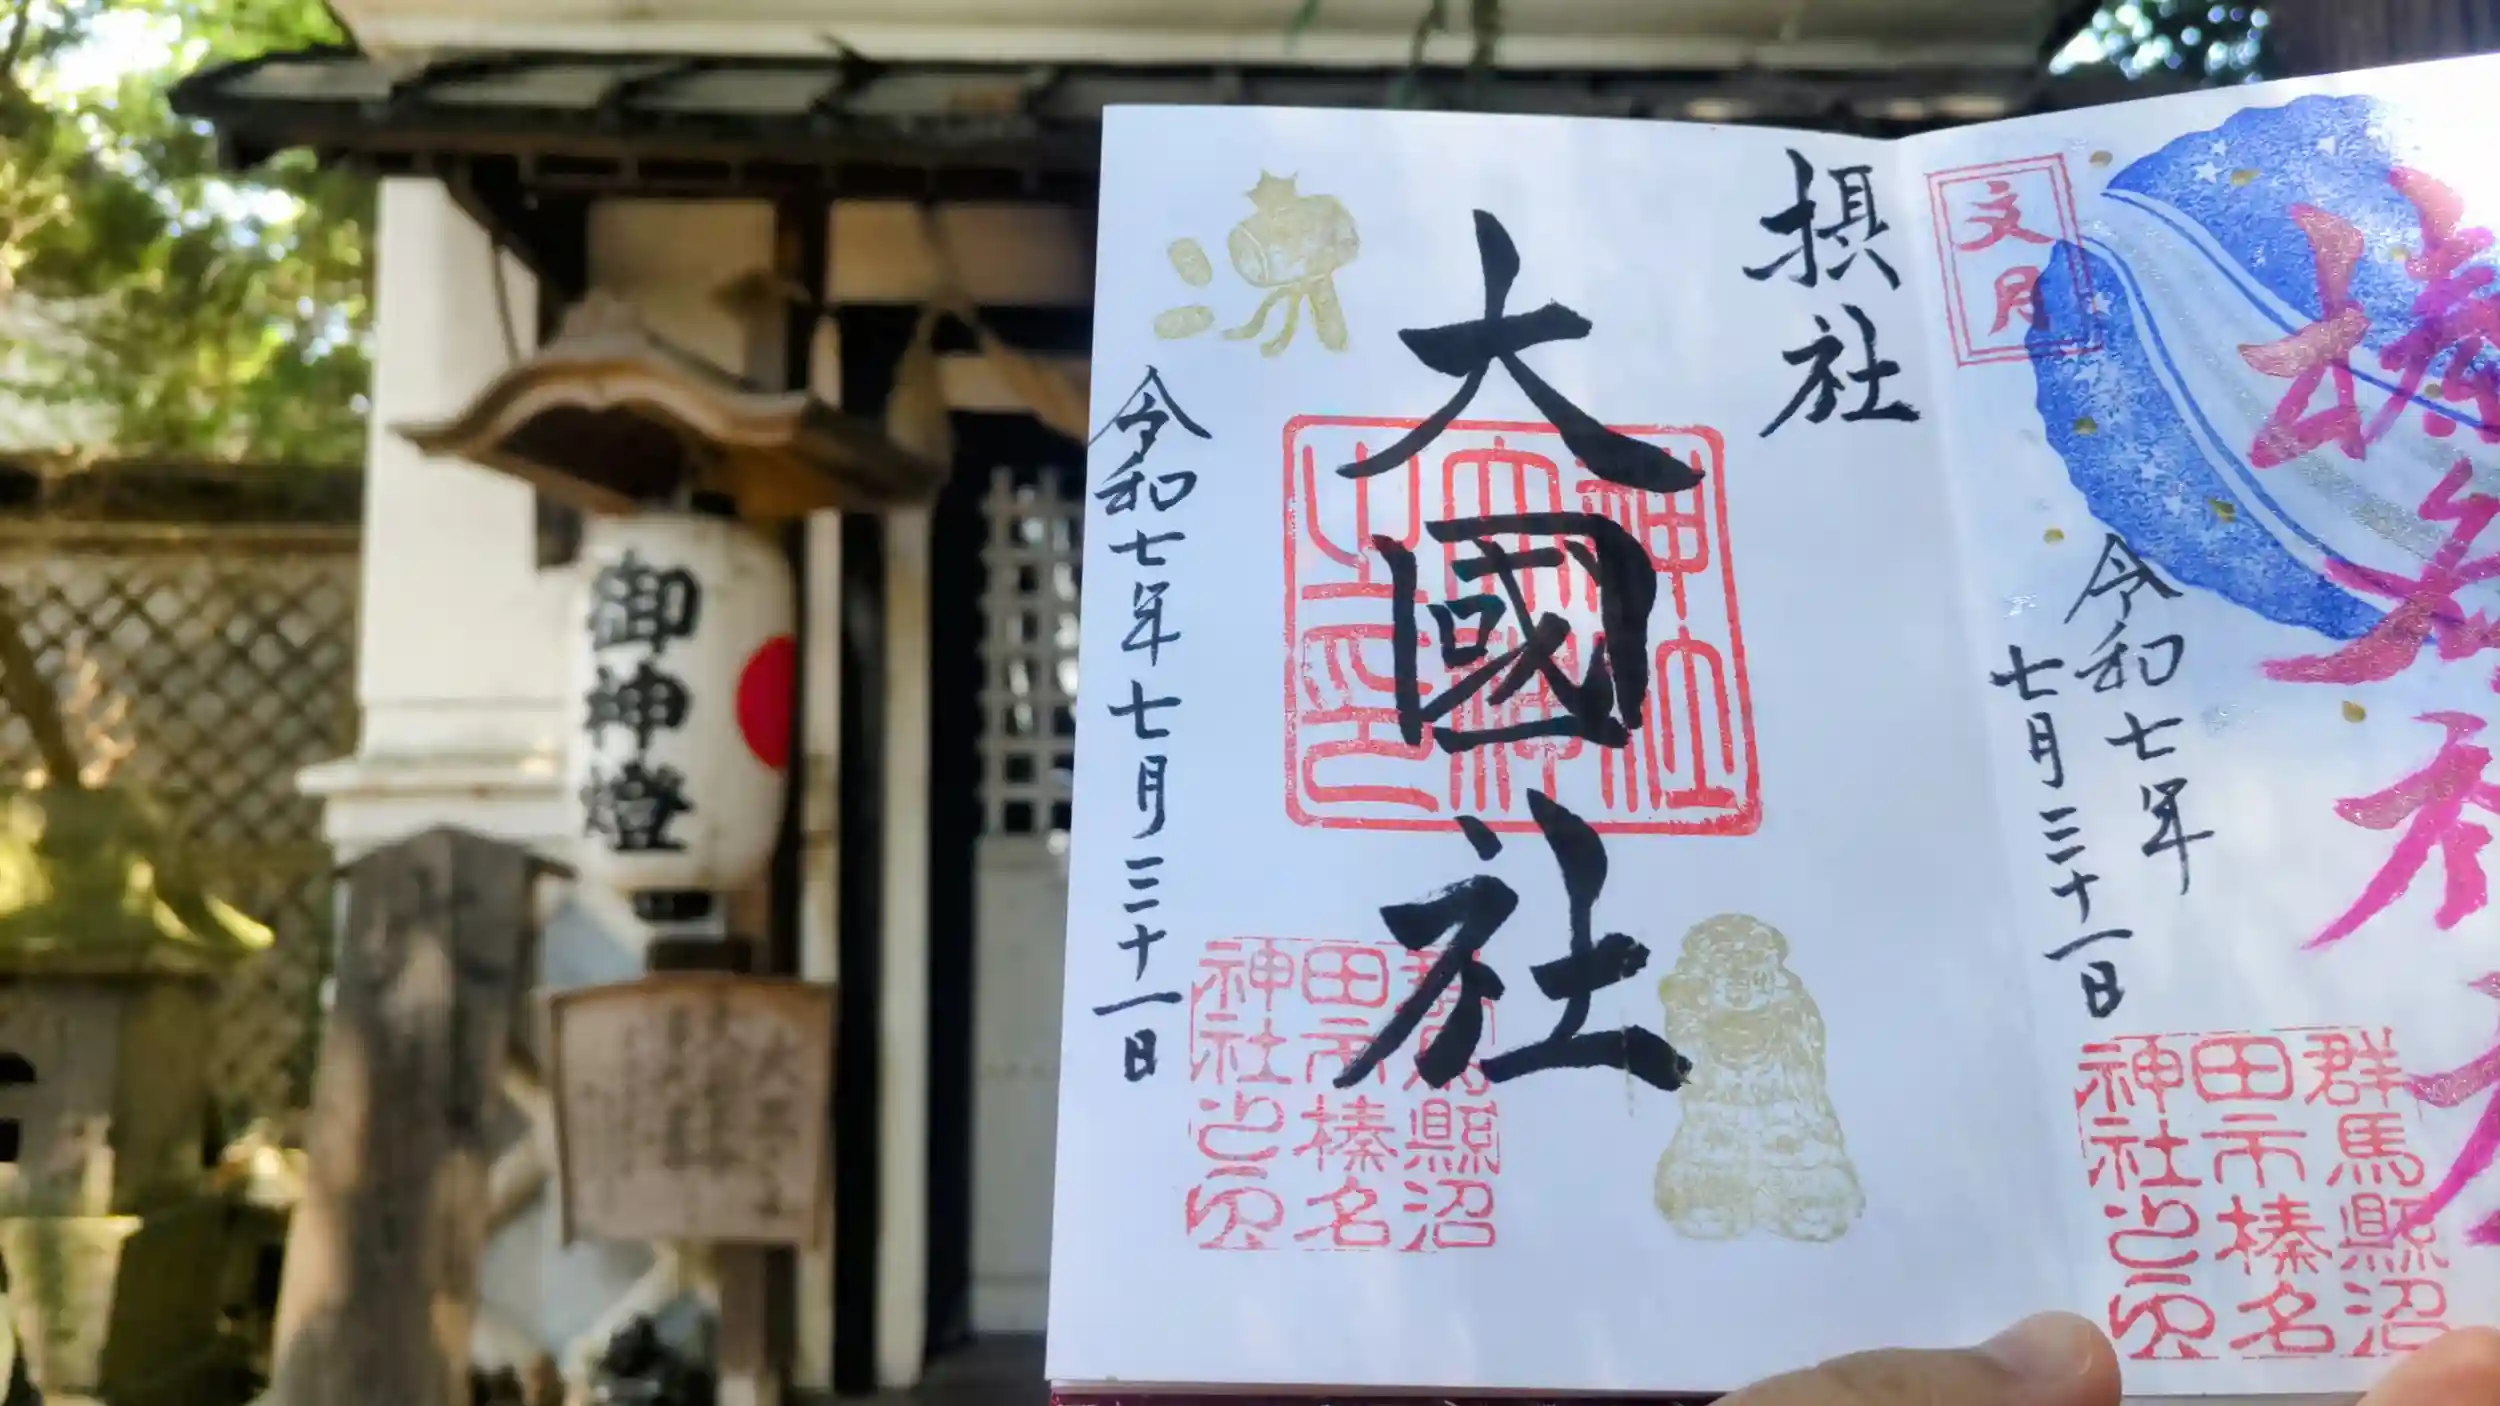 文月
榛名神社
令和七年
七月三十一日
群馬縣沼
田市榛名
神社之印
摂社
大國社
神社
之印
令和七年七月三十一日
群馬縣沼
田市榛名
神社之印
御神燈